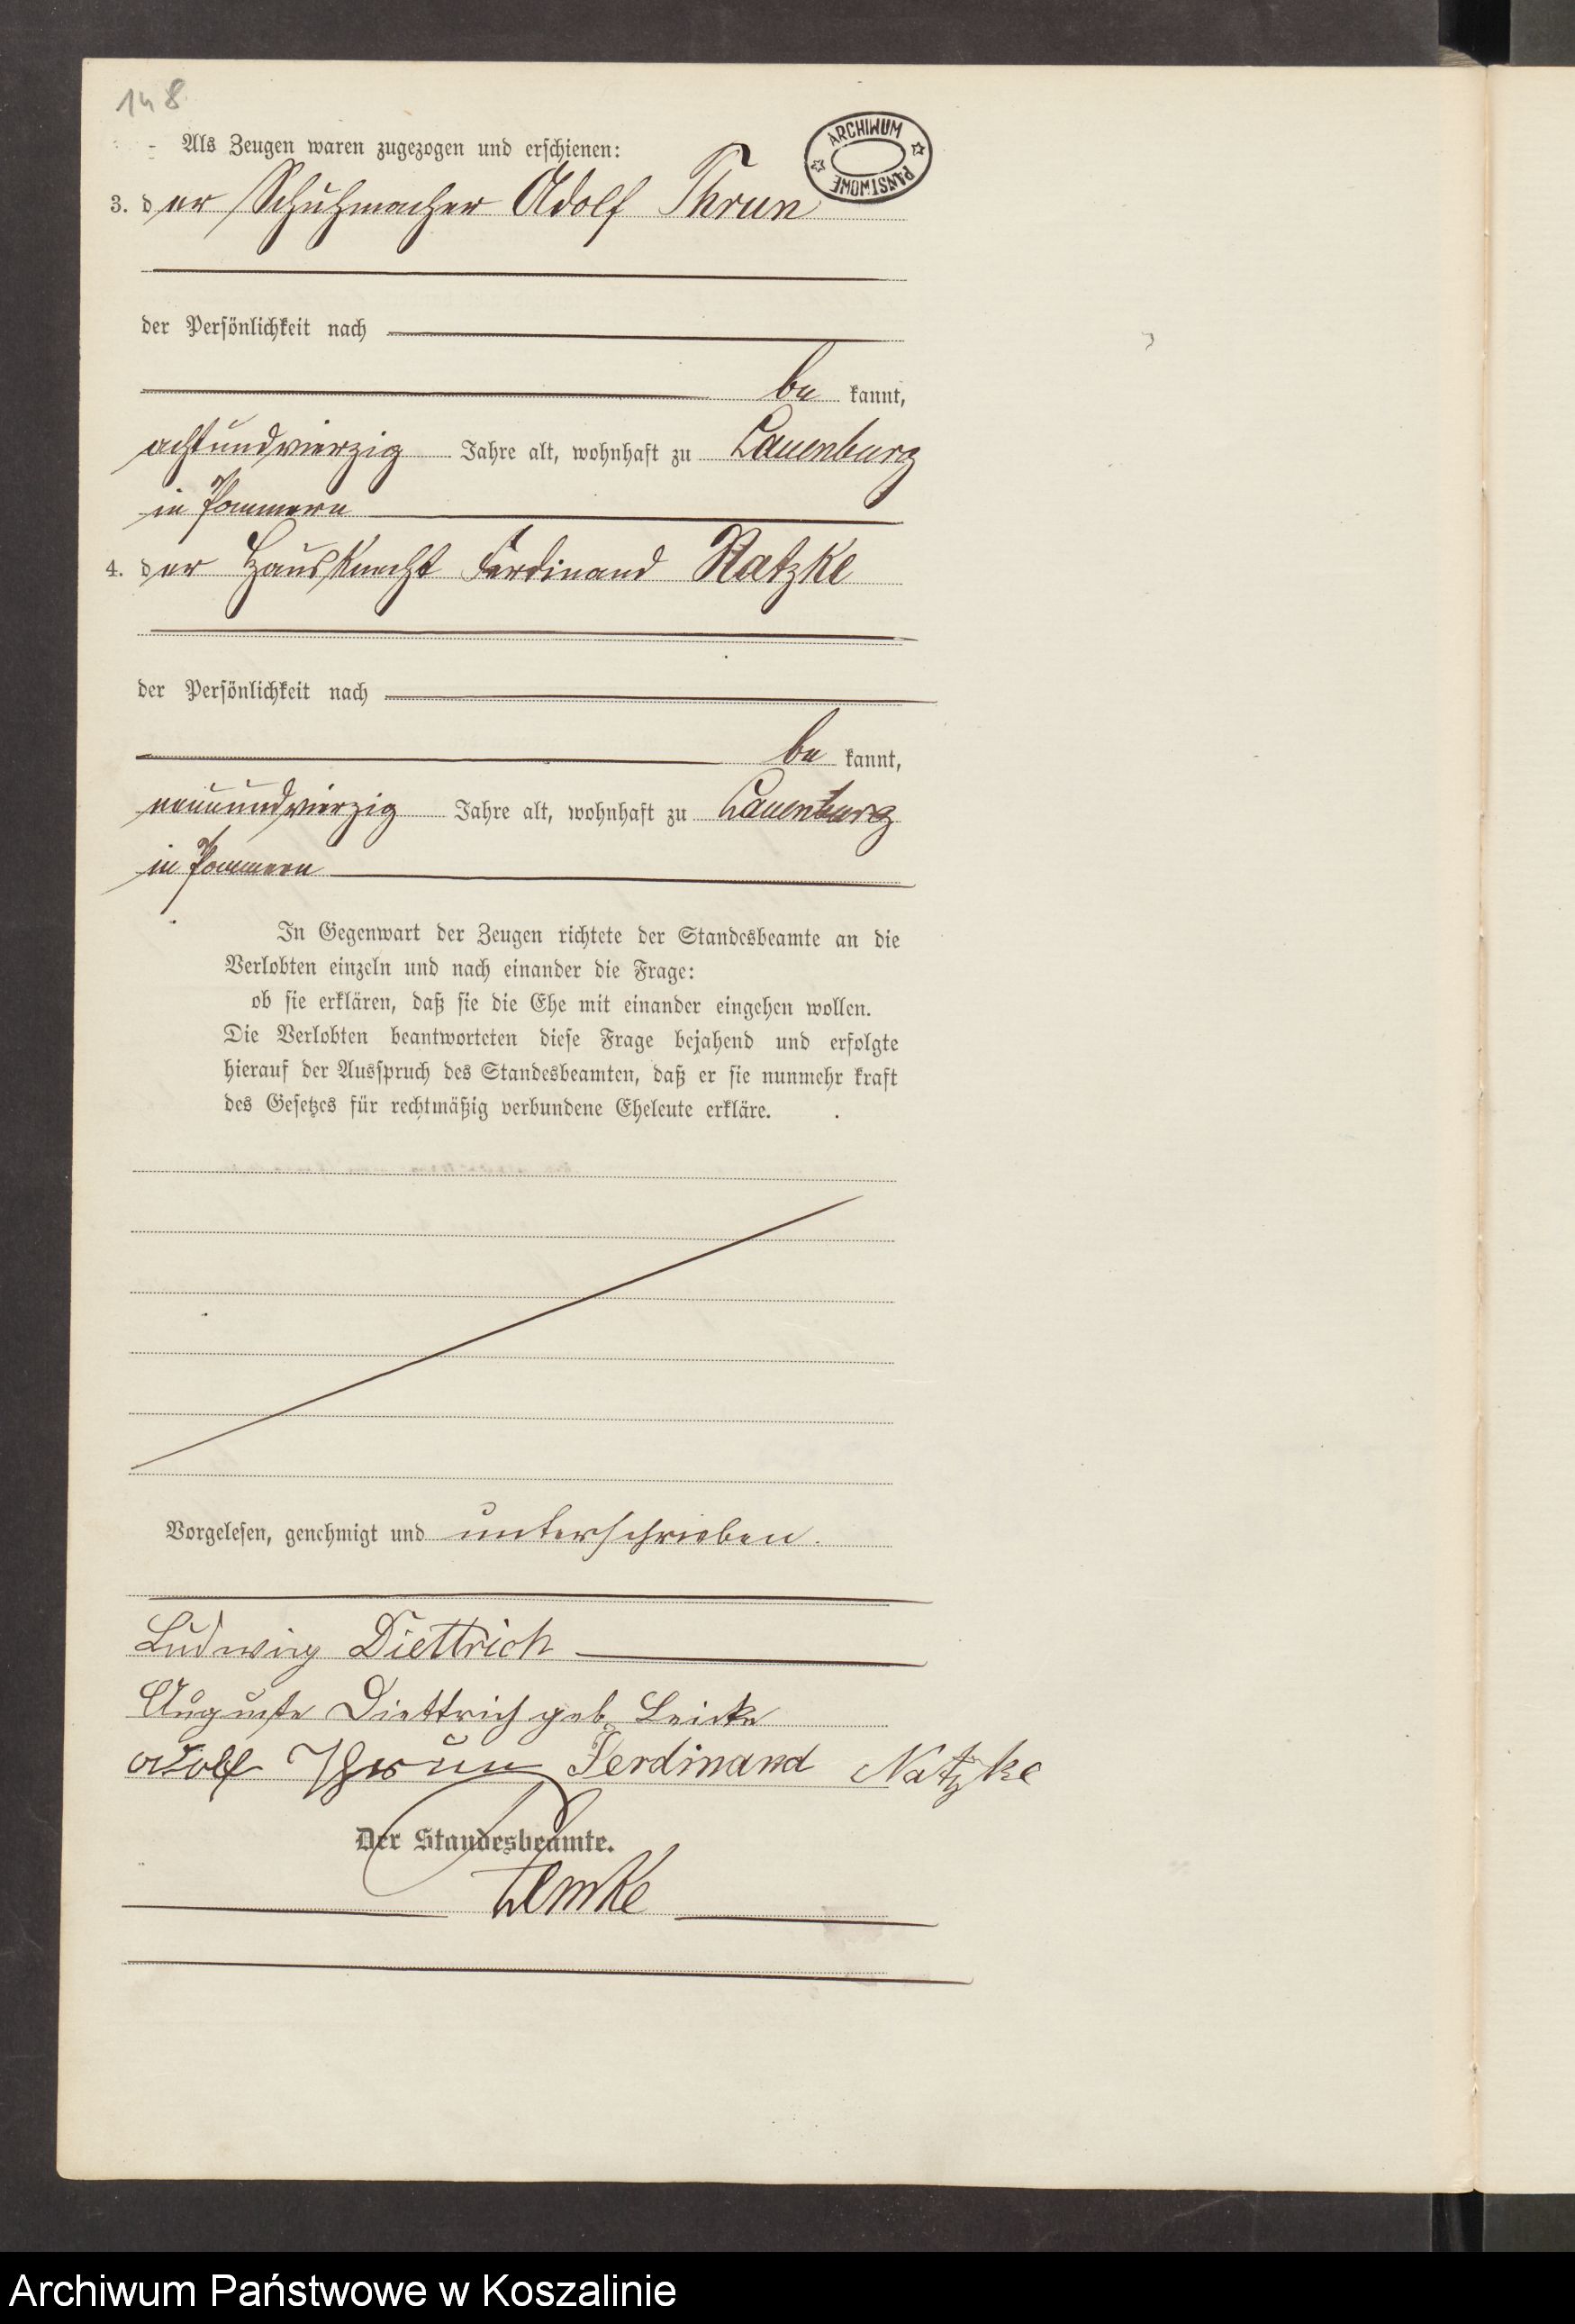 148
Als Zeugen waren zugezogen und erschienen:
ARCHIWUM PAŃSTWOWE
3. der Schuhmacher Adolf Thrun
der Persönlichkeit nach
be kannt,
achtundvierzig Jahre alt, wohnhaft zu Lauenburg
in Pommern
4. der Hausknecht Ferdinand Natzke
der Persönlichkeit nach
be kannt,
neunundvierzig Jahre alt, wohnhaft zu Lauenburg
in Pommern
In Gegenwart der Zeugen richtete der Standesbeamte an die
Verlobten einzeln und nach einander die Frage:
ob sie erklären, daß sie die Ehe mit einander eingehen wollen.
Die Verlobten beantworteten diese Frage bejahend und erfolgte
hierauf der Ausspruch des Standesbeamten, daß er sie nunmehr kraft
des Gesetzes für rechtmäßig verbundene Eheleute erkläre.
Vorgelesen, genehmigt und unterschrieben.
Ludwig Diettrich
Auguste Diettrich geb. Leicke
Adolf Thrun Ferdinand Natzke
Der Standesbeamte.
Lemke
Archiwum Państwowe w Koszalinie